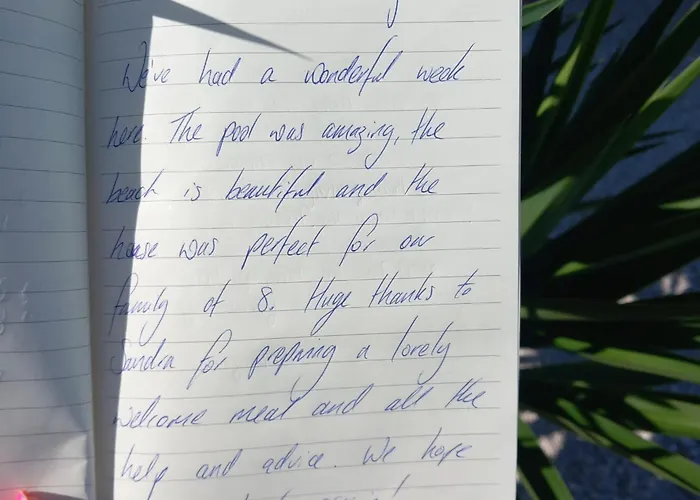 We've had a wonderful week
here. The pool was amazing, the
beach is beautiful and the
house was perfect for our
family of 8. Huge thanks to
Sandra for preparing a lovely
welcome meal and all the
help and advice. We hope